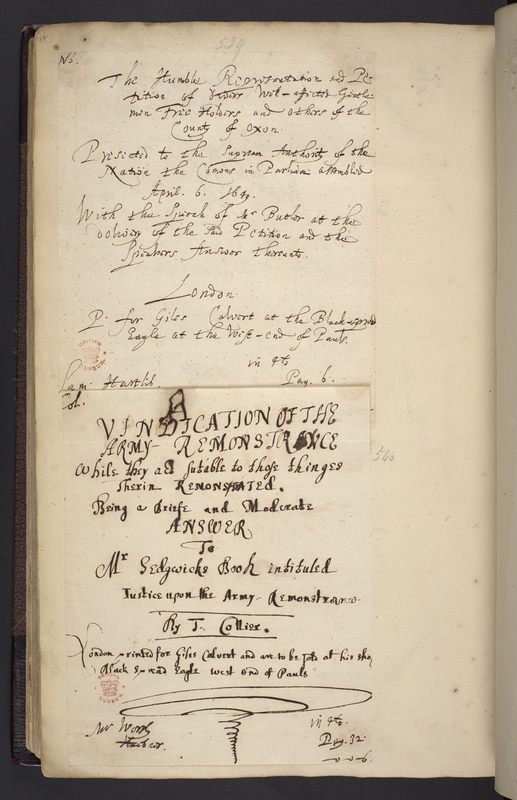 539
No.
The Humble Representation and Pe-
tition of divers Well-affected Gentle-
men Free Holders and others of the
County of Oxon.
Presented to the Supream Authority of the
Nation the Comons in Parliam. assembled
April. 6. 1649.
With the Speech of Mr Butler at the
delivery of the said Petition and the
Speakers Answer thereunto.
London
P. for Giles Calvert at the Black-spred
Eagle at the West-end of Pauls.
in 4to
Sam. Hartlib. Pag. 6.
Col.
A
VINDICATION OF THE
ARMY-REMONSTRANCE
540
While they act sutable to those thinges
therin REMONSTRATED.
Being a Briefe and Moderate
ANSWER
To
Mr Sedgwicks Book intituled
Justice upon the Army-Remonstrance
By T. Collier.
London printed for Giles Calvert and are to be sold at his sho
Black spread Eagle west end of Pauls
Mr Worth in 4to.
Pag. 32
0-0-6.